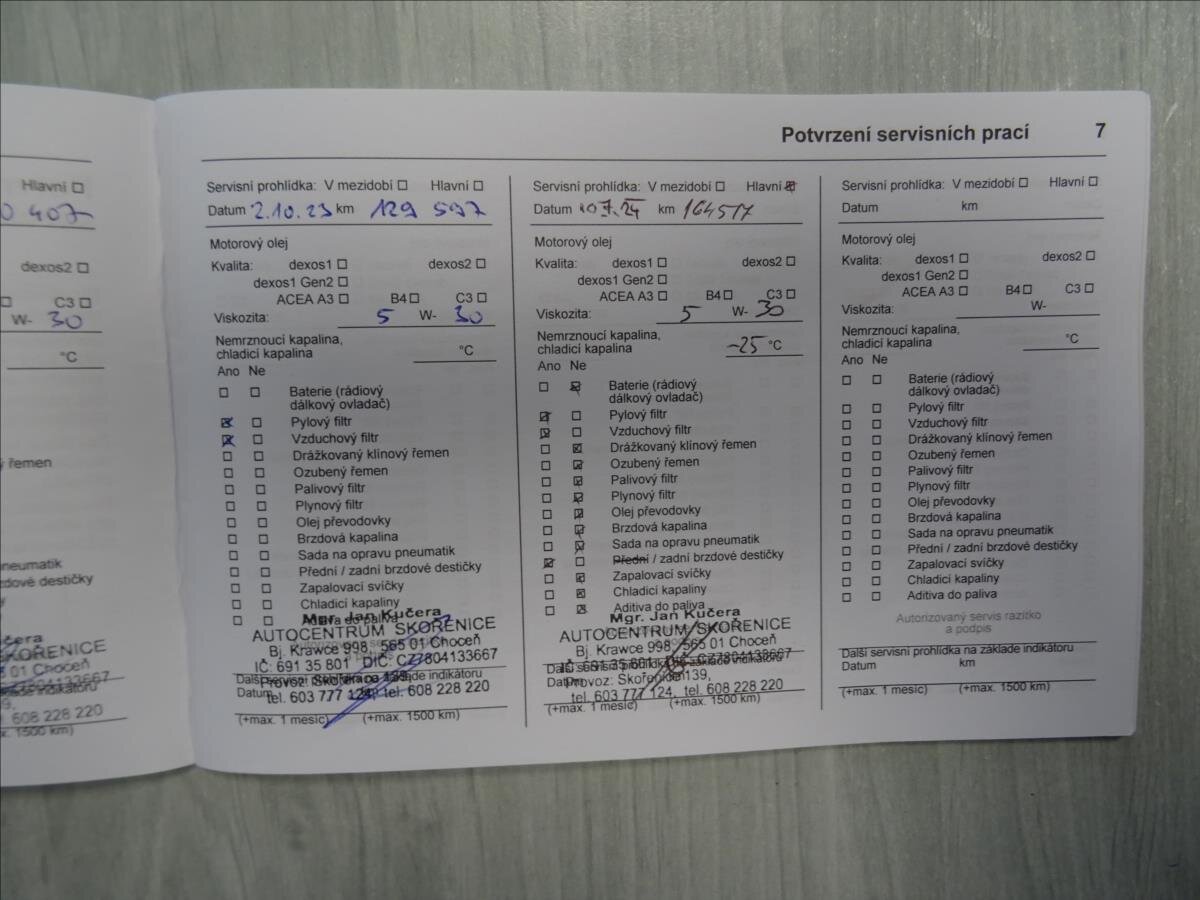 Potvrzení servisních prací 7
Hlavní
407
dexos2
C3
W- 30
°C
řemen
neumatik
zdové destičky
KOŘENICE
01 Choceň
608 228 220
x. 1500 km)
Servisní prohlídka: V mezidobí Hlavní
Datum 2.10.23 km 129 597
Motorový olej
Kvalita: dexos1 dexos2
dexos1 Gen2
ACEA A3 B4 C3
Viskozita: 5 W- 30
Nemrznoucí kapalina,
chladicí kapalina °C
Ano Ne
Baterie (rádiový
dálkový ovladač)
Pylový filtr
Vzduchový filtr
Drážkovaný klínový řemen
Ozubený řemen
Palivový filtr
Plynový filtr
Olej převodovky
Brzdová kapalina
Sada na opravu pneumatik
Přední / zadní brzdové destičky
Zapalovací svíčky
Chladicí kapaliny
Aditiva do paliva
Mgr. Jan Kučera
AUTOCENTRUM SKOŘENICE
Bj. Krawce 998, 565 01 Choceň
IČ: 691 35 801 DIČ: CZ7804133667
Provoz: Skořenice 139,
Datum
tel. 603 777 124, tel. 608 228 220
(+max. 1 měsíc) (+max. 1500 km)
Servisní prohlídka: V mezidobí Hlavní
Datum 07.24 km 164517
Motorový olej
Kvalita: dexos1 dexos2
dexos1 Gen2
ACEA A3 B4 C3
Viskozita: 5 W- 30
Nemrznoucí kapalina,
chladicí kapalina -25 °C
Ano Ne
Baterie (rádiový
dálkový ovladač)
Pylový filtr
Vzduchový filtr
Drážkovaný klínový řemen
Ozubený řemen
Palivový filtr
Plynový filtr
Olej převodovky
Brzdová kapalina
Sada na opravu pneumatik
Přední / zadní brzdové destičky
Zapalovací svíčky
Chladicí kapaliny
Aditiva do paliva
Mgr. Jan Kučera
AUTOCENTRUM SKOŘENICE
Bj. Krawce 998, 565 01 Choceň
IČ: 691 35 801 DIČ: CZ7804133667
Provoz: Skořenice 139,
tel. 603 777 124, tel. 608 228 220
(+max. 1 měsíc) (+max. 1500 km)
Servisní prohlídka: V mezidobí Hlavní
Datum km
Motorový olej
Kvalita: dexos1 dexos2
dexos1 Gen2
ACEA A3 B4 C3
Viskozita: W-
Nemrznoucí kapalina,
chladicí kapalina °C
Ano Ne
Baterie (rádiový
dálkový ovladač)
Pylový filtr
Vzduchový filtr
Drážkovaný klínový řemen
Ozubený řemen
Palivový filtr
Plynový filtr
Olej převodovky
Brzdová kapalina
Sada na opravu pneumatik
Přední / zadní brzdové destičky
Zapalovací svíčky
Chladicí kapaliny
Aditiva do paliva
Autorizovaný servis razítko
a podpis
Další servisní prohlídka na základe indikátoru
Datum km
(+max. 1 měsíc) (+max. 1500 km)